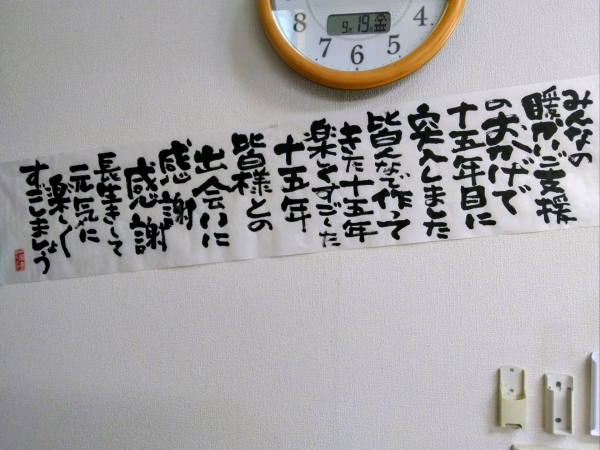 8 7 6 5 4
9月19日金
みんなの
暖かいご支援
のおかげで
十五年目に
突入しました
皆んなで作って
きた十五年
楽しくすごした
十五年
皆様との
出会いに
感謝
感謝
長生きして
元気に
楽しく
すごしましょう